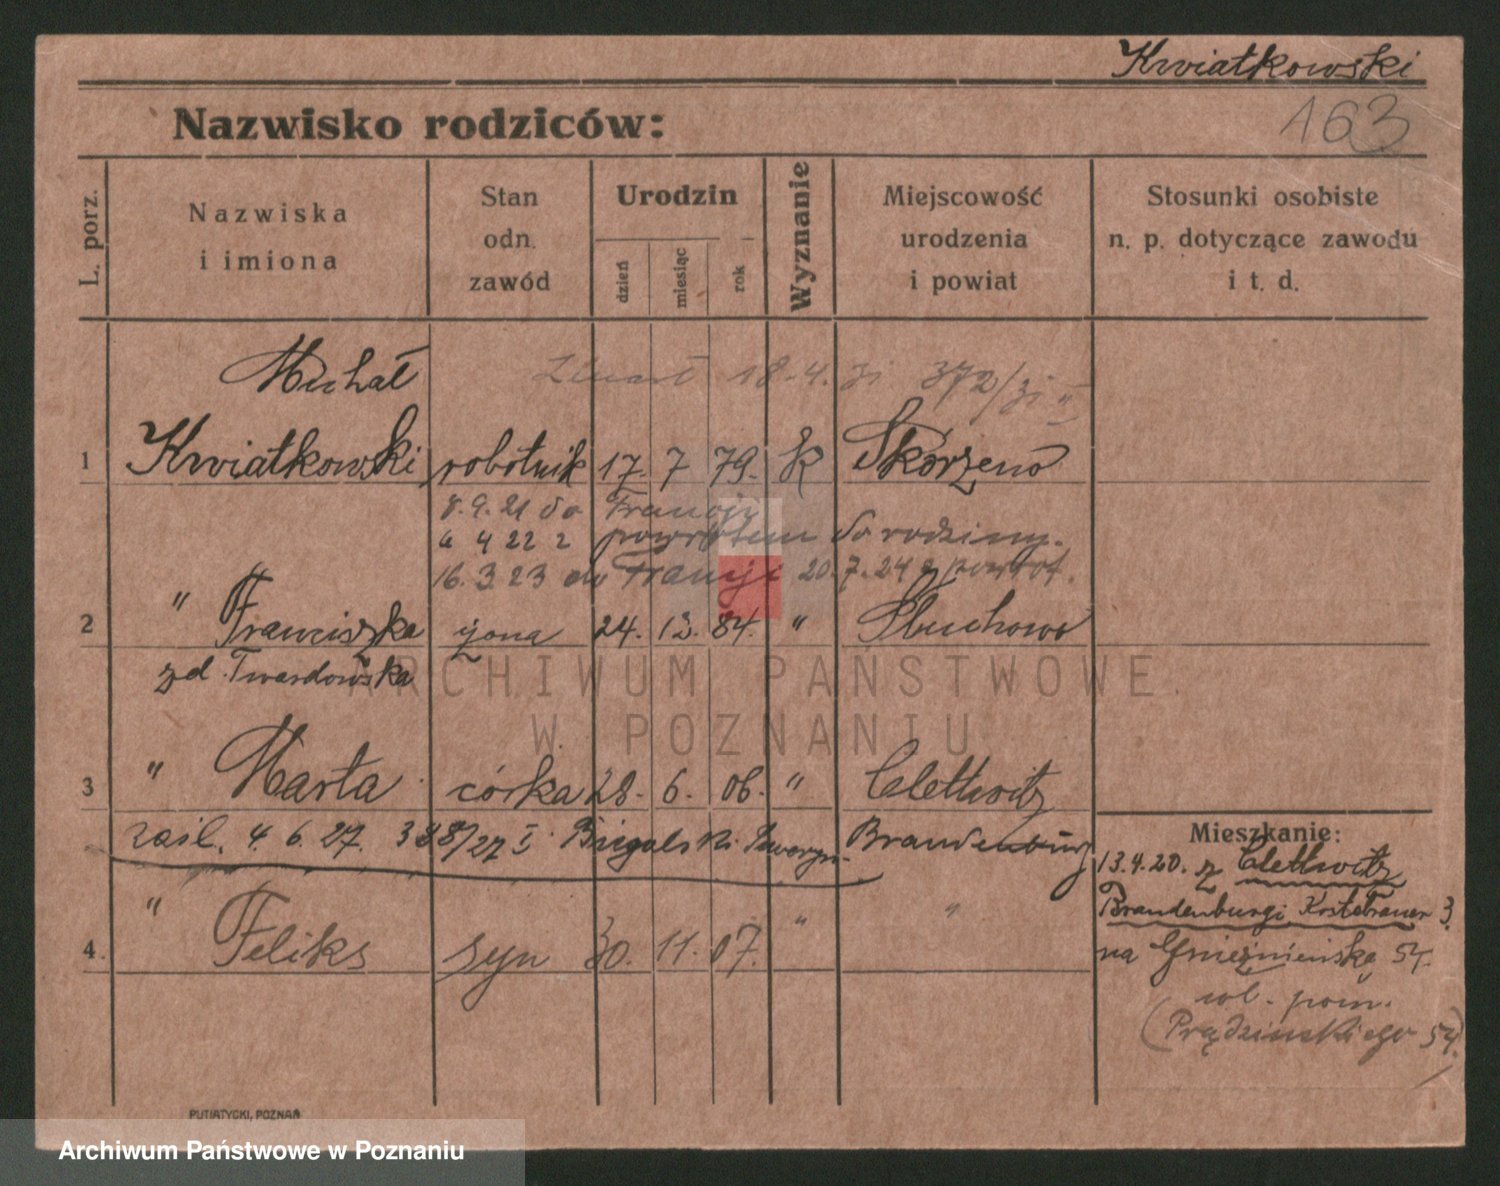 Kwiatkowski
163
Nazwisko rodziców:
L. porz.
Nazwiska i imiona
Stan odn. zawód
Urodzin
dzień
miesiąc
rok
Wyznanie
Miejscowość urodzenia i powiat
Stosunki osobiste n. p. dotyczące zawodu i t. d.
Michał
Zmarł 18.4.31 372/31 II
1 Kwiatkowski robotnik 17. 7 79. K Skorzeno
8.9.21 do Francji
4 22 z powrotem do rodziny.
16.3.23 do Francji 20.7.24 z powrot.
2 " Franciszka żona 24. 12. 84. " Słuchowo
zd. Twardowska
3 " Marta córka 28. 6. 06. " Clettwitz
zaśl. 4.6.27. 388/27 I Brandenburg
4. " Feliks syn 30. 11. 07. " "
Mieszkanie:
13.4.20. z Clettwitz
Brandenburgi 3.
na Gnieźnieńską 54.
wl. pom.
(Prądzinskiego 54)
PUTIATYCKI, POZNAŃ
ARCHIWUM PAŃSTWOWE
W POZNANIU
Archiwum Państwowe w Poznaniu